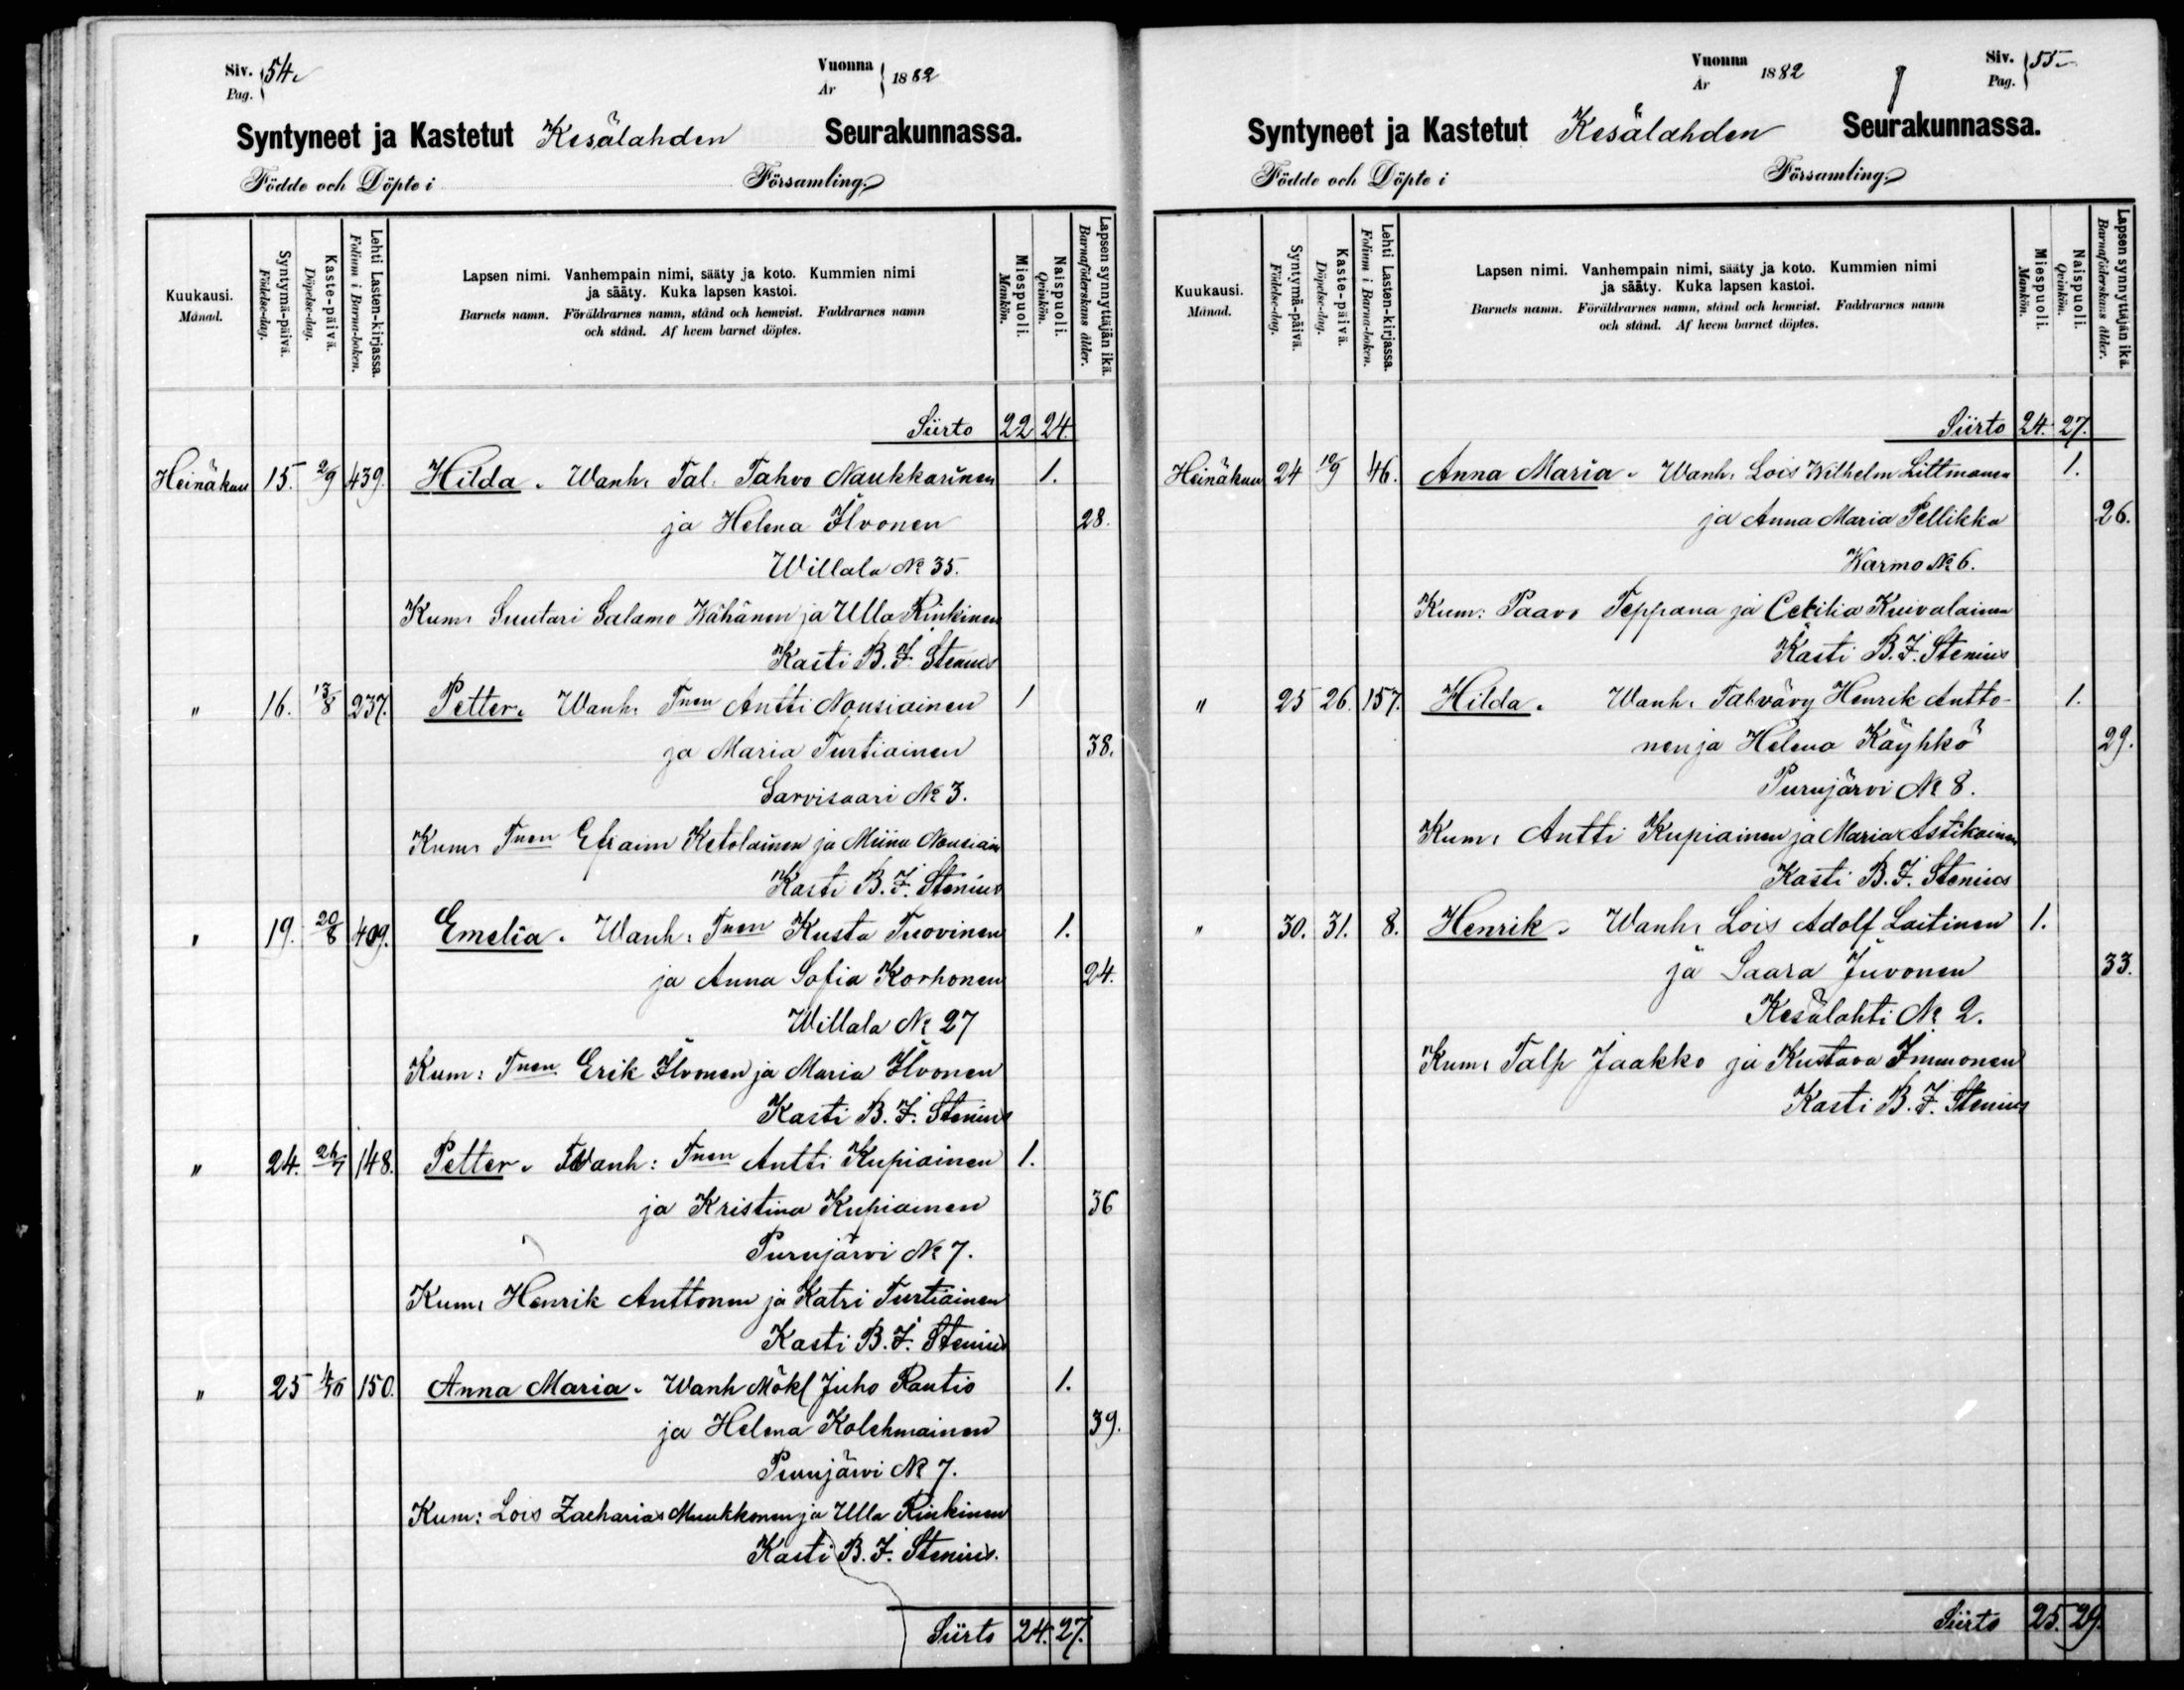 Siv. 54.
Pag.
Vuonna 1882
År
Syntyneet ja Kastetut Kesälahden Seurakunnassa.
Födde och Döpte i Församling.
Kuukausi.
Månad.
Syntymä-päivä.
Födelse-dag.
Kaste-päivä.
Döpelse-dag.
Lehti Lasten-kirjassa.
Folium i Barna-boken.
Lapsen nimi. Vanhempain nimi, sääty ja koto. Kummien nimi
ja sääty. Kuka lapsen kastoi.
Barnets namn. Föräldrarnes namn, stånd och hemvist. Faddrarnes namn
och stånd. Af hvem barnet döptes.
Miespuoli.
Mankön.
Naispuoli.
Qvinkön.
Lapsen synnyttäjän ikä.
Barnaföderskans ålder.
Siirto 22 24
Heinäkuu 15. 2/9 439. Hilda. Wanh. Tal. Tahvo Naukkarinen 1.
ja Helena Ilvonen 28.
Willala № 35.
Kum. Suutari Salamo Wähänen ja Ulla Rinkinen
Kasti B. F. Stenius
" 16. 13/8 237. Petter. Wanh. Tnen Antti Nousiainen 1
ja Maria Turtiainen 38.
Sarvisaari № 3.
Kum. Tnen Efraim Ketolainen ja Miina Nousiain
Kasti B. F. Stenius
" 19. 20/8 409. Emelia. Wanh. Tnen Kusta Tuovinen 1.
ja Anna Sofia Korhonen 24.
Willala № 27
Kum: Tnen Erik Ilvonen ja Maria Ilvonen
Kasti B. F. Stenius
" 24. 26/7 148. Petter. Wanh: Tnen Antti Kupiainen 1.
ja Kristina Kupiainen 36
Purujärvi № 7.
Kum. Henrik Anttonen ja Katri Turtiainen
Kasti B. F. Stenius
" 25 150. Anna Maria. Wanh Mökl Juho Rautio 1.
ja Helena Kolehmainen 39.
Purujärvi № 7.
Kum: Lois Zacharias Muukkonen ja Ulla Rinkinen
Kasti B. F. Stenius.
Siirto 24. 27.
Vuonna 1882
År
Siv. 55
Pag.
Syntyneet ja Kastetut Kesälahden Seurakunnassa.
Födde och Döpte i Församling.
Kuukausi.
Månad.
Syntymä-päivä.
Födelse-dag.
Kaste-päivä.
Döpelse-dag.
Lehti Lasten-kirjassa.
Folium i Barna-boken.
Lapsen nimi. Vanhempain nimi, sääty ja koto. Kummien nimi
ja sääty. Kuka lapsen kastoi.
Barnets namn. Föräldrarnes namn, stånd och hemvist. Faddrarnes namn
och stånd. Af hvem barnet döptes.
Miespuoli.
Mankön.
Naispuoli.
Qvinkön.
Lapsen synnyttäjän ikä.
Barnaföderskans ålder.
Siirto 24. 27.
Heinäkuu 24 10/9 46. Anna Maria. Wanh. Lois Wilhelm Littmanen 1.
ja Anna Maria Pellikka 26.
Warmo № 6.
Kum: Paavo Teppana ja Cecilia Kuivalainen
Kasti B. F. Stenius
" 25 26. 157. Hilda. Wanh. Tal.vävy Henrik Antto- 1.
nen ja Helena Käyhkö 29.
Purujärvi № 8.
Kum. Antti Kupiainen ja Maria Astikainen
Kasti B. F. Stenius
" 30. 31. 8. Henrik. Wanh. Lois Adolf Laitinen 1.
ja Saara Juvonen 33.
Kesälahti № 2.
Kum. Talp Jaakko ja Kustava Immonen
Kasti B. F. Stenius
Siirto 25. 29.